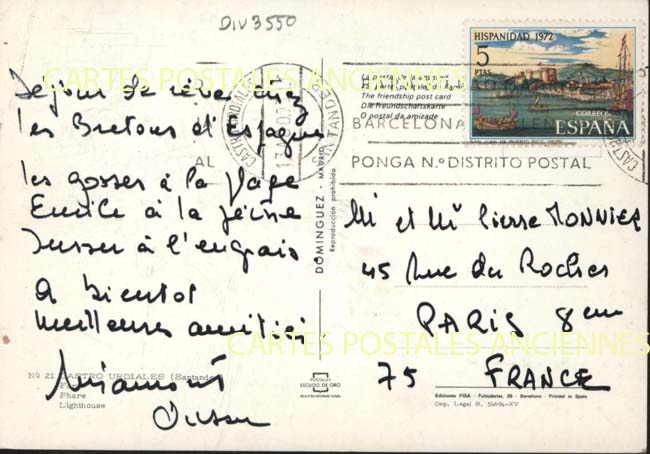 DIV3550
HISPANIDAD 1972
5
PTAS
CORREOS
ESPAÑA
CARTES POSTALES ANCIENNES
La postal de la amistad
The friendship post card
Die freundschaftskarte
O postal da amizade
BARCELONA
AL
PONGA N.º DISTRITO POSTAL
Séjour de rêve chez
les Bretons d'Espagne
les gosses à la plage
Emile à la pêche
à l'engrais
A bientot
Meilleures amitiés
DOMINGUEZ - MADRID
Reproducción prohibida
M et Mme Pierre MONNIER
45 Rue du Rocher
PARIS 8em
75 FRANCE
CARTES POSTALES ANCIENNES
Nº 21 CASTRO URDIALES (Santander)
Phare
Lighthouse
POSTALES
ESCUDO DE ORO
Ediciones FISA - Palaudarias, 26 - Barcelona - Printed in Spain
Dep. Legal B. 54694-XV